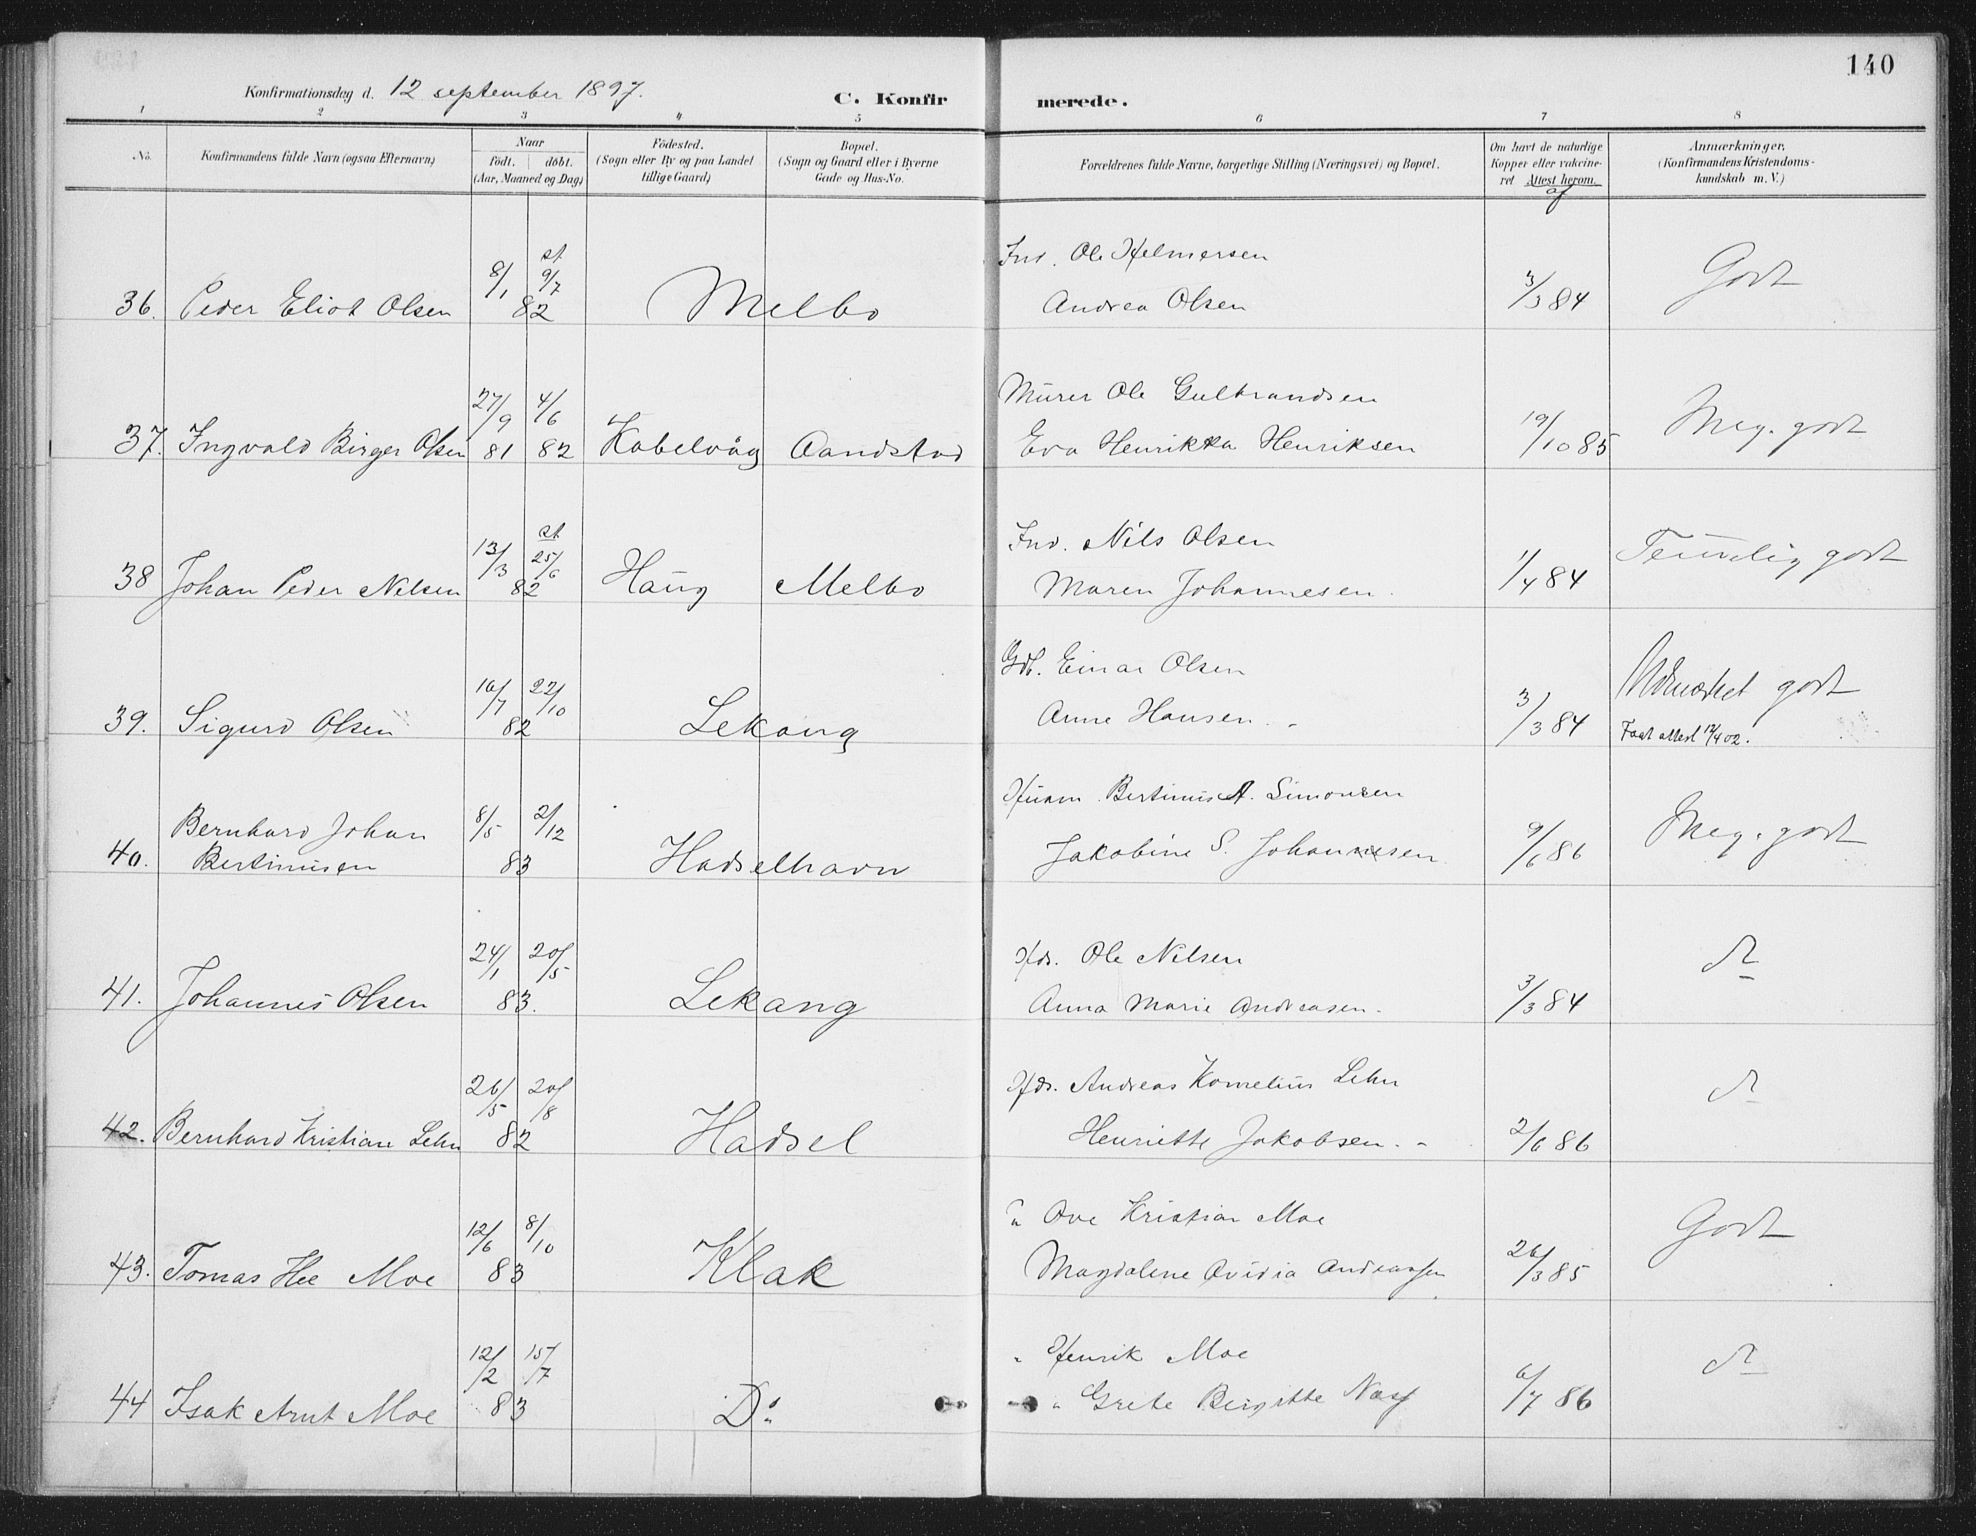 140
Konfirmationsdag d. 12 september 1897.
C. Konfirmerede.
1 2 3 4 5 6 7 8
No. Konfirmandens fulde Navn (ogsaa Efternavn) Naar födt. döbt. (Aar, Maaned og Dag) Födested. (Sogn eller By og paa Landet tillige Gaard) Bopæl. (Sogn og Gaard eller i Byerne Gade og Hus-No. Forældrenes fulde Navne, borgerlige Stilling (Næringsvei) og Bopæl. Om havt de naturlige Kopper eller vakcineret Attest herom af Anmærkninger. (Konfirmandens Kristendomskundskab m. V.)
Ind. Ole Helmersen
36. Peder Eliot Olsen 8/1 st 9/7 82 Melbo Andrea Olsen 3/3 84 Godt
Murer Ole Gulbrandsen
37. Ingvald Birger Olsen 27/9 81 4/6 82 Kabelvåg Aandstad Eva Henrikka Henriksen 19/10 85 Meg. godt
Ind. Nils Olsen
38 Johan Peder Nilsen 13/3 st 25/6 82 Haug Melbo Maren Johannesen. 1/4 84 Temmelig godt
Gdb. Einar Olsen
39. Sigurd Olsen 16/7 22/10 82 Lekang Anne Hansen. 3/3 84 Udmærket godt
Faat attest 12/4 02.
Husm. Bertinus A. Simonsen
40. Bernhard Johan Bertinusen 8/5 2/12 83 Hadselhavn Jakobine S. Johannesen 9/6 86 Meg. godt
Hfds. Ole Nilsen
41. Johannes Olsen 24/1 20/5 83. Lekang Anna Marie Andreasen. 3/3 84 do
Hfds. Andreas Kornelius Lehn
42. Bernhard Kristian Lehn 26/5 20/8 82 Hadsel Henriette Jakobsen. 2/6 86 do
" Ove Kristian Moe
43. Tomas Hee Moe 12/6 8/10 83 Klak Magdalene Ovidia Andreassen 26/3 85 Godt
" Henrik Moe
44 Isak Arnt Moe 12/2 15/7 83 Do " Grete Birgitte Næss 6/7 86 do